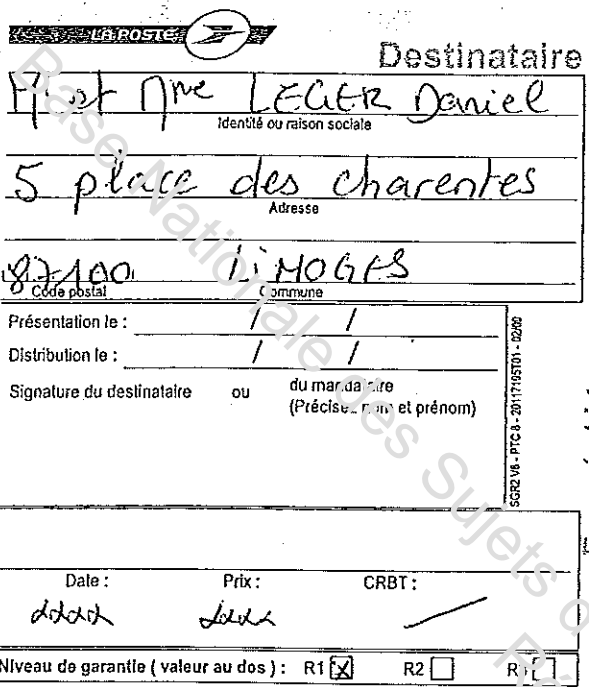 LA POSTE
Destinataire
Mr et Mme LEGER Daniel
Identité ou raison sociale
5 place des charentes
Adresse
87100 LIMOGES
Code postal Commune
Présentation le : / /
Distribution le : / /
Signature du destinataire ou du mandataire
(Précisez nom et prénom)
SGR2 V6 - PTC 8 - 20117195T01 - 02/09
Date : Prix : CRBT :
Niveau de garantie ( valeur au dos ) : R1 X R2
Base Nationale des Sujets d